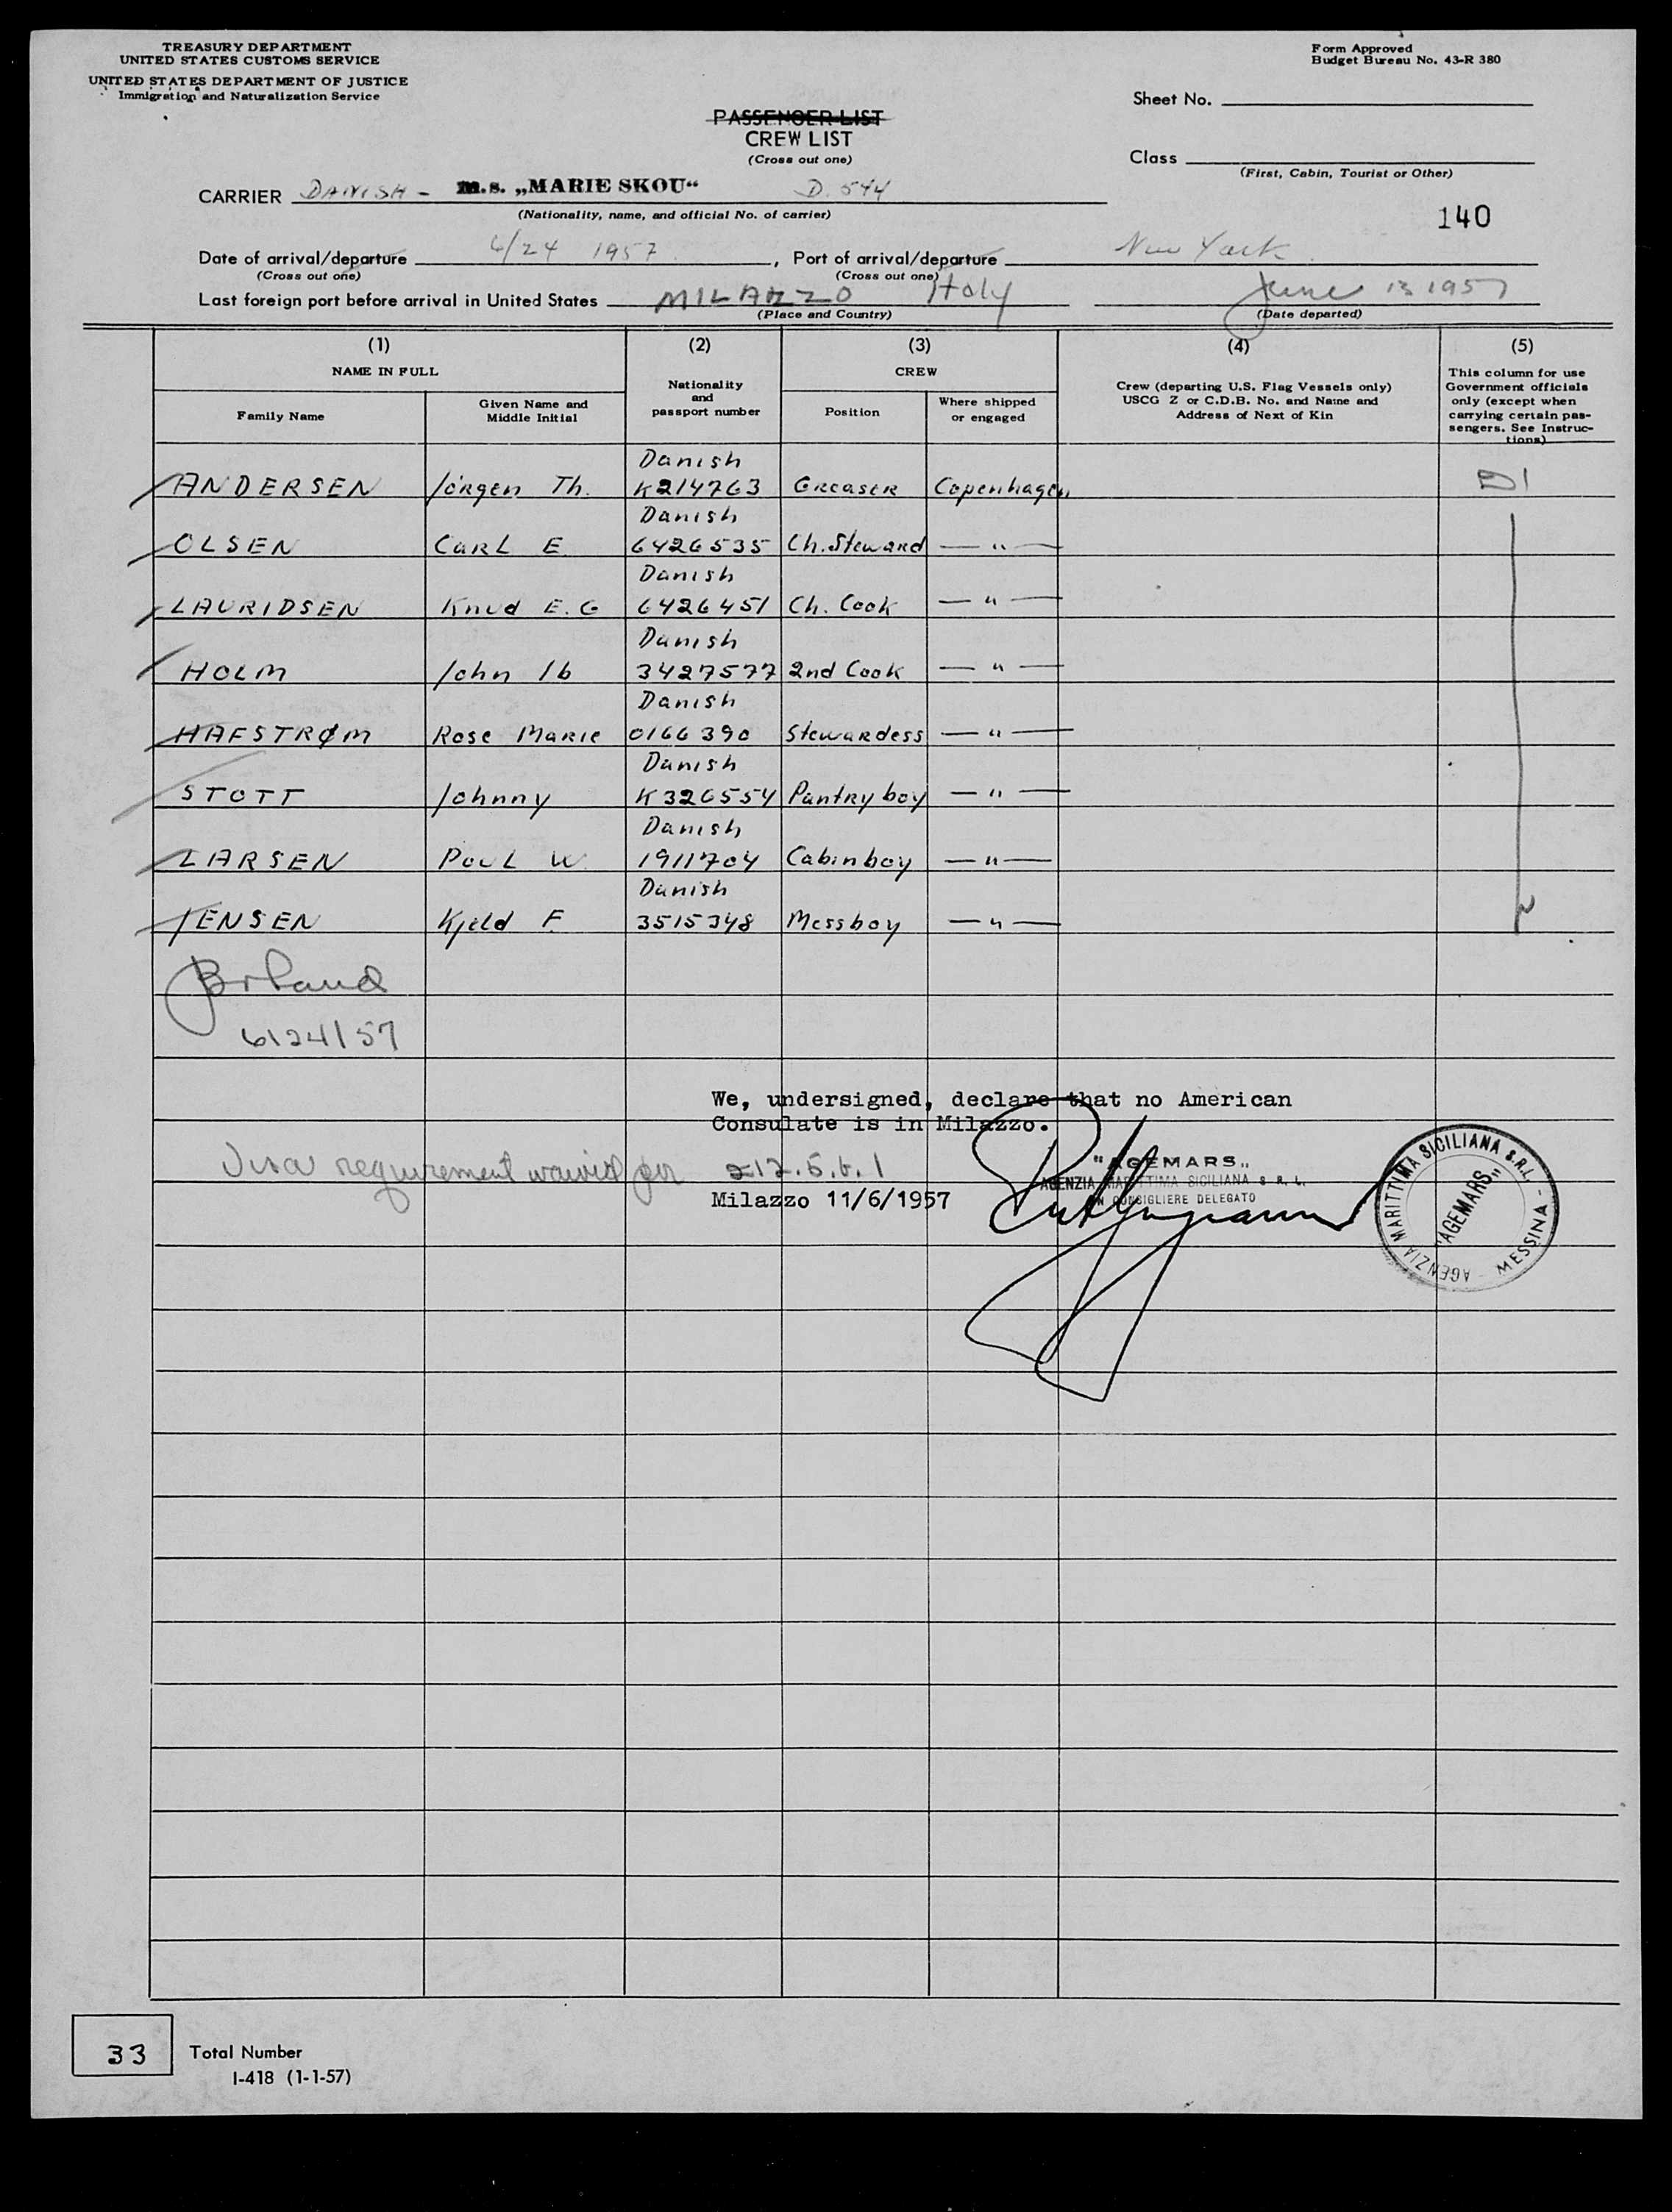 TREASURY DEPARTMENT
UNITED STATES CUSTOMS SERVICE
UNITED STATES DEPARTMENT OF JUSTICE
Immigration and Naturalization Service
Form Approved
Budget Bureau No. 43-R 380
Sheet No.
PASSENGER LIST
CREW LIST
(Cross out one)
Class
(First, Cabin, Tourist or Other)
CARRIER DANISH - m.s. „MARIE SKOU“ D. 544
(Nationality, name, and official No. of carrier)
140
Date of arrival/departure 6/24 1957, Port of arrival/departure New York
(Cross out one) (Cross out one)
Last foreign port before arrival in United States MILAZZO Italy June 13 1957
(Place and Country) (Date departed)
(1) (2) (3) (4) (5)
NAME IN FULL
Family Name
Given Name and Middle Initial
Nationality and passport number
CREW
Position
Where shipped or engaged
Crew (departing U.S. Flag Vessels only)
USCG Z or C.D.B. No. and Name and
Address of Next of Kin
This column for use
Government officials
only (except when
carrying certain pas-
sengers. See Instruc-
tions)
Danish
ANDERSEN Jörgen Th. K214763 Greaser Copenhagen D1
Danish
OLSEN Carl E. 6426535 Ch. Steward — " —
Danish
LAURIDSEN Knud E. G 6426451 Ch. Cook — " —
Danish
HOLM John Ib 3427577 2nd Cook — " —
Danish
HAFSTRØM Rose Marie 0166390 Stewardess — " —
Danish
STOTT Johnny K326554 Pantry boy — " —
Danish
LARSEN Poul W. 1911704 Cabinboy — " —
Danish
JENSEN Kjeld F. 3515348 Messboy — " —
6/24/57
We, undersigned, declare that no American
Consulate is in Milazzo.
Visa requirement waived per 212.5.b.1
Milazzo 11/6/1957
"AGEMARS„
AGENZIA MARITTIMA SICILIANA S. R. L.
UN CONSIGLIERE DELEGATO
AGENZIA MARITTIMA SICILIANA S.R.L. - MESSINA -
"AGEMARS„
33 Total Number
I-418 (1-1-57)